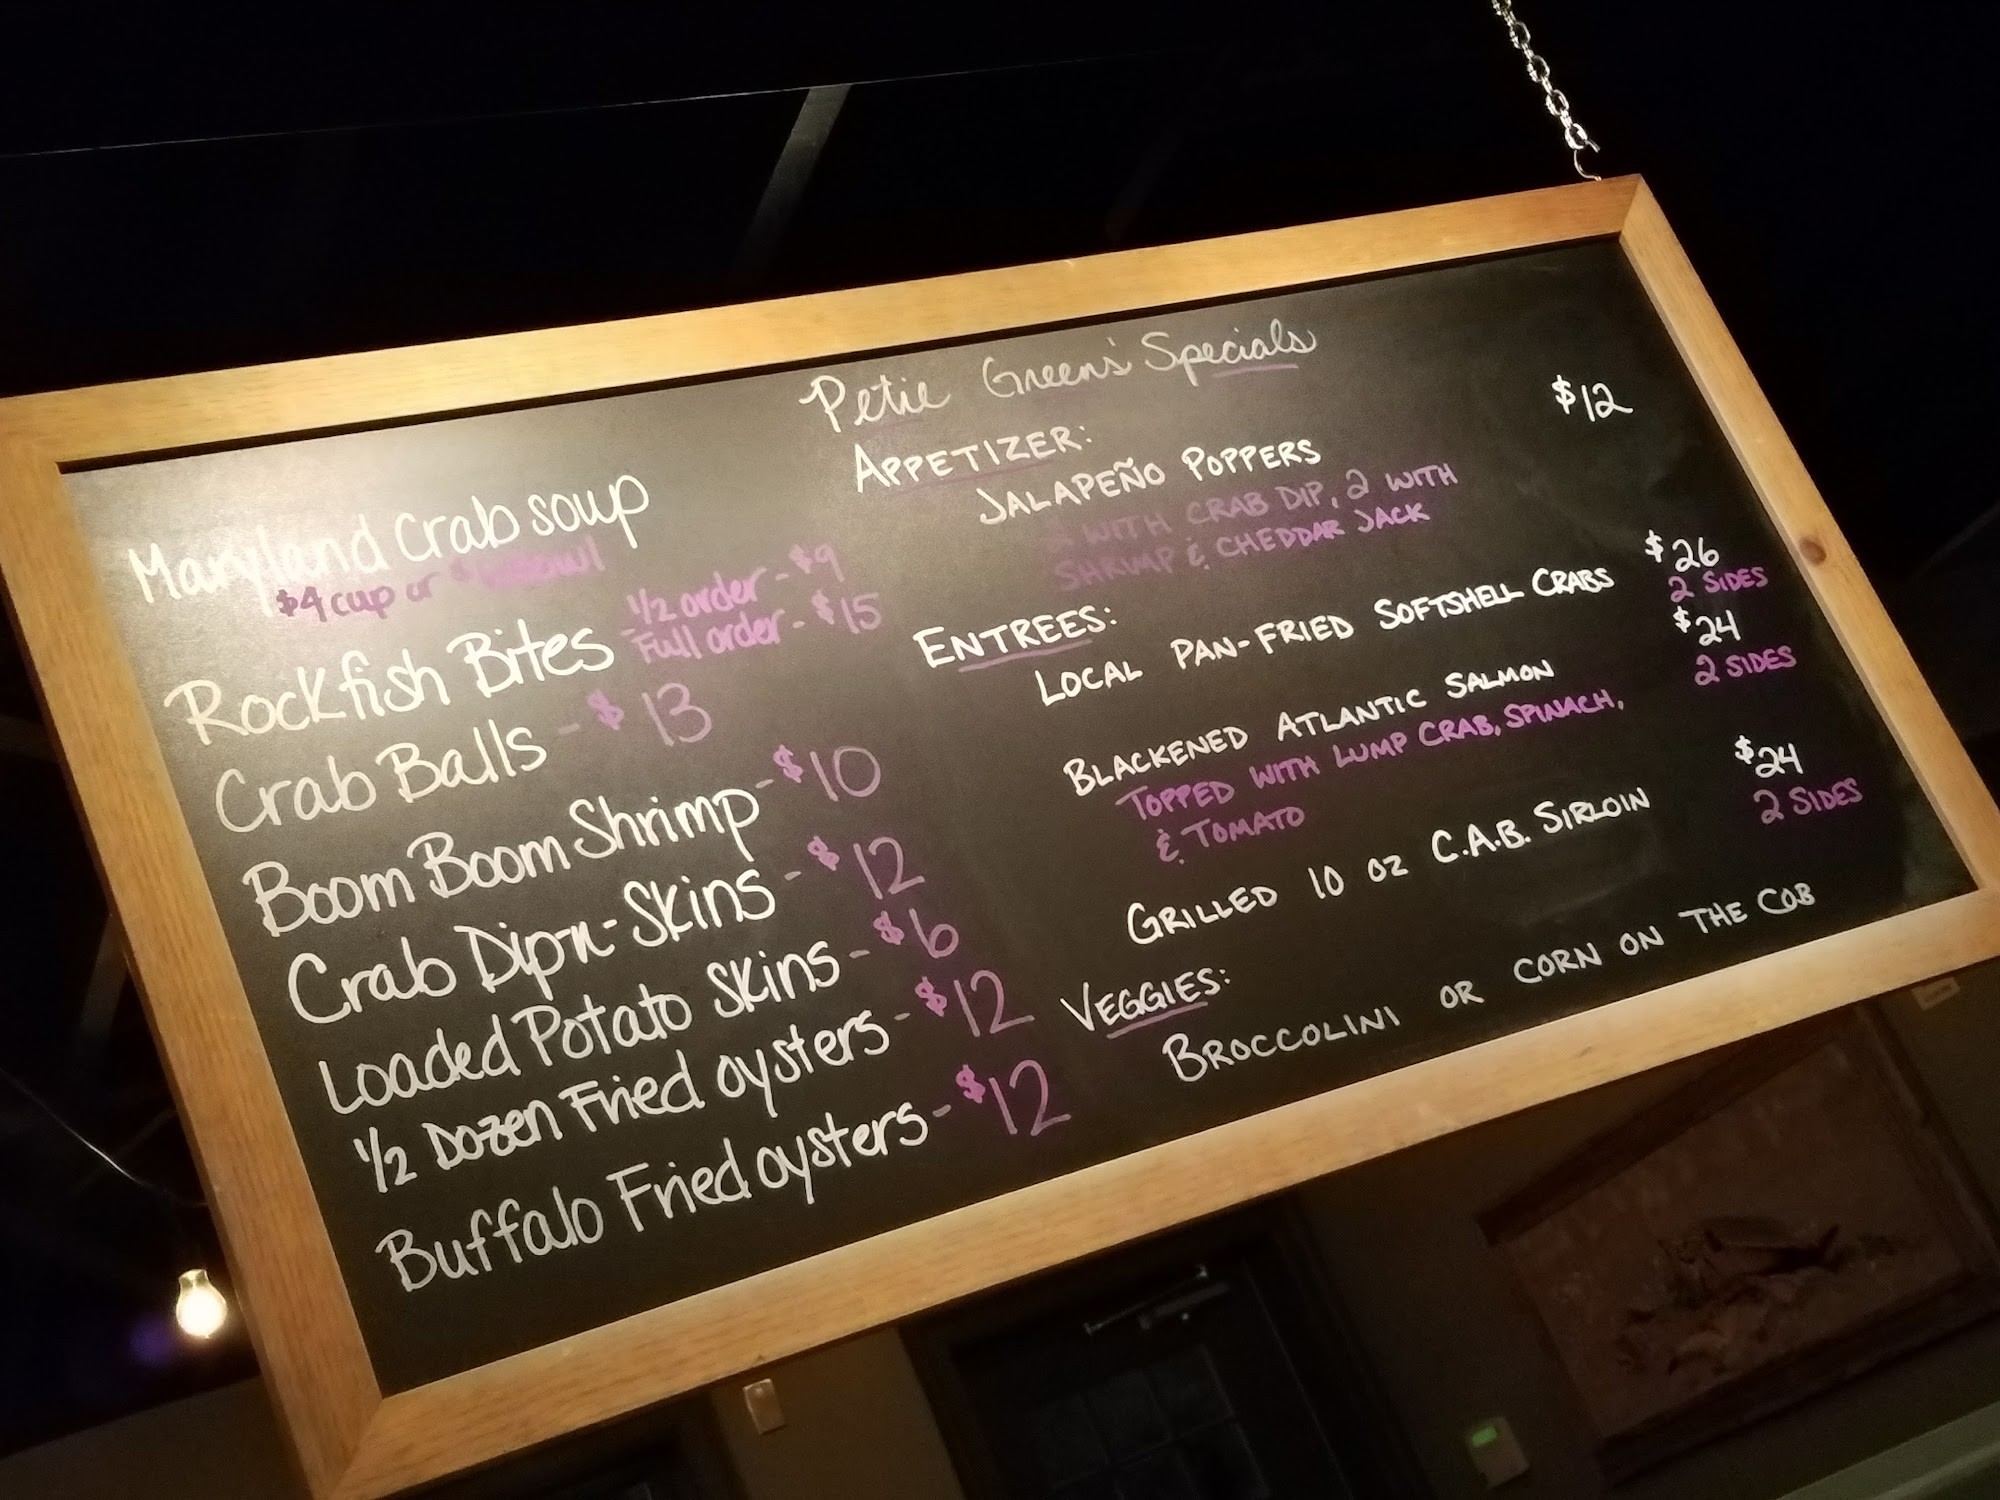 Petie Greens' Specials
Maryland Crab soup
$4 cup or bowl
Rockfish Bites
1/2 order - $9
Full order - $15
Crab Balls - $13
Boom Boom Shrimp - $10
Crab Dip-n-Skins - $12
Loaded Potato Skins - $6
1/2 Dozen Fried oysters - $12
Buffalo Fried oysters - $12
APPETIZER:
JALAPEÑO POPPERS $12
2 WITH CRAB DIP, 2 WITH
SHRIMP & CHEDDAR JACK
ENTREES:
LOCAL PAN-FRIED SOFTSHELL CRABS $26
2 SIDES
BLACKENED ATLANTIC SALMON $24
2 SIDES
TOPPED WITH LUMP CRAB, SPINACH,
& TOMATO
GRILLED 10 OZ C.A.B. SIRLOIN $24
2 SIDES
VEGGIES:
BROCCOLINI OR CORN ON THE COB